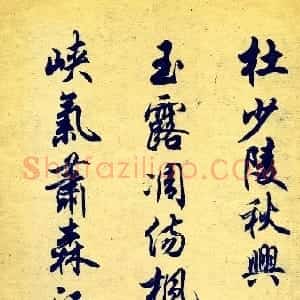 杜少陵秋興
玉露凋傷楓
峽氣蕭森江
Shufaziliao.COM